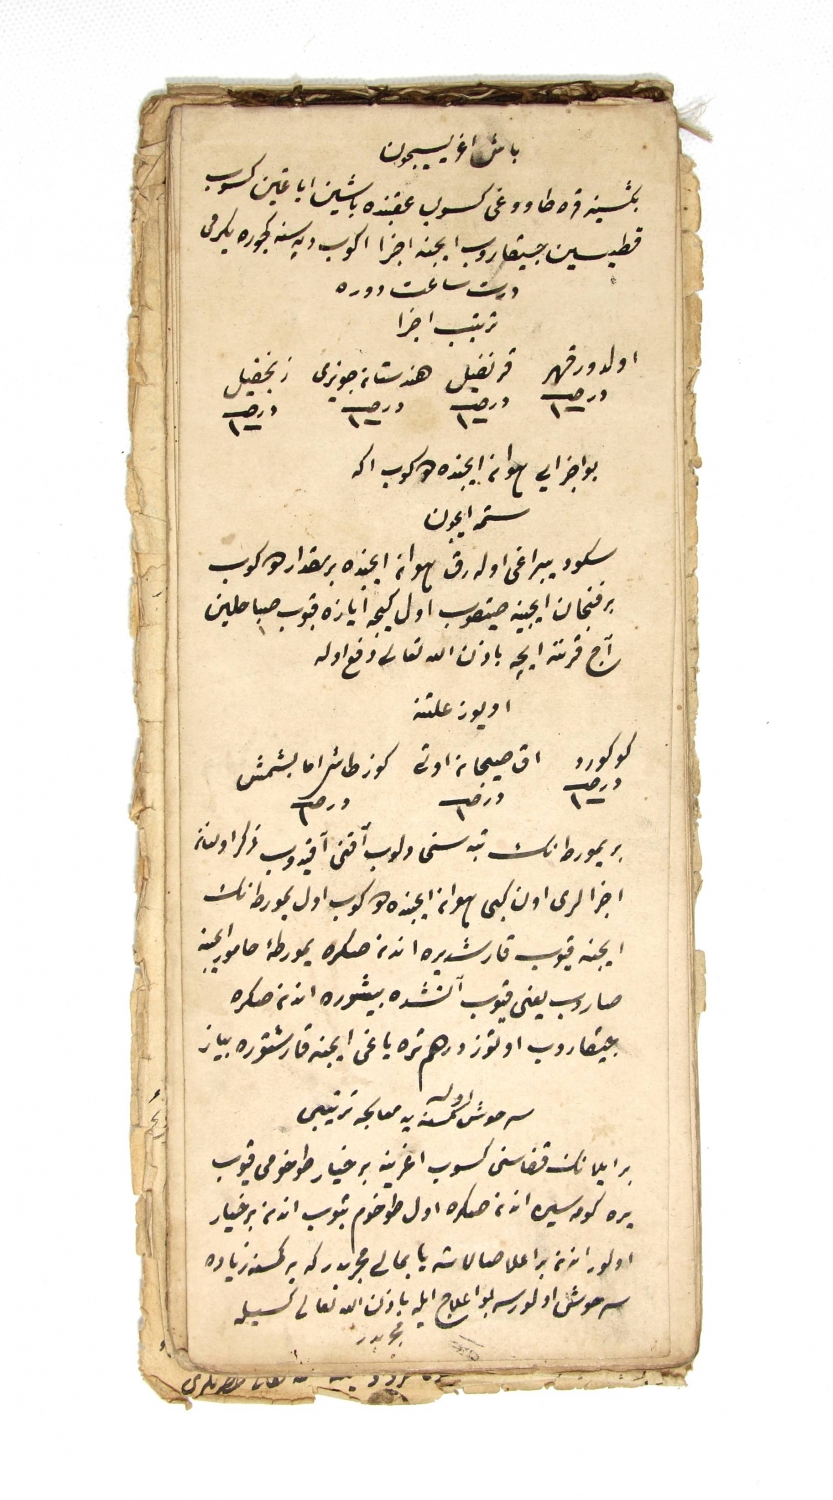 باش اغریسیچون
بکشینه قره طاووغی کسوب عقبنده باشین ایاغین کسوب
چیقاروب ایچنه اجزا اکوب دپه سنه کچوره یکرمی
درت ساعت دوره
ترتیب اجزا
قرنفیل هندستان جویزی زنجفیل
درهم ١ درهم ١ درهم ١ درهم ١
بو اجزایی هوان ایچنده دوکوب اکه
ستمه ایچون
سکود یپراغی اوله رق هوان ایچنده بر مقدار دوکوب
بر فنجان ایچینه صیقوب اول کیجه ایازه قیوب صباحلین
آج قرننه ایچه باذن الله تعالی دفع اوله
اویوز علتنه
کوکورد اق صیچان اوتی کوز طاشی اما پشمش
درهم ١ درهم ١ درهم
بر یمورطانک تپه سنی دلوب آقنی آقیدوب ذکر اولنان
اجزالری اون کبی هوان ایچنده دوکوب اول یمورطانک
ایچنه قیوب قارشدیره اندن صکره یمورطه خامور ایچنه
صاروب یعنی قیوب آتشده پیشوره اندن صکره
چیقاروب اوتوز درهم تره یاغی ایچنه قارشتوره
سرخوش اوله کمسنه یه معالجه ترتیبی
بر ییلانک قفاسنی کسوب اغزینه بر خیار طوخومی قیوب
یره کومه سین اندن صکره اول طوخوم بتوب اندن بر خیار
اولور اندن بر اعلا مجربدر که بر کمسنه زیاده
سرخوش اولورسه بو علاج ایله باذن الله تعالی کسیله
مجربدر